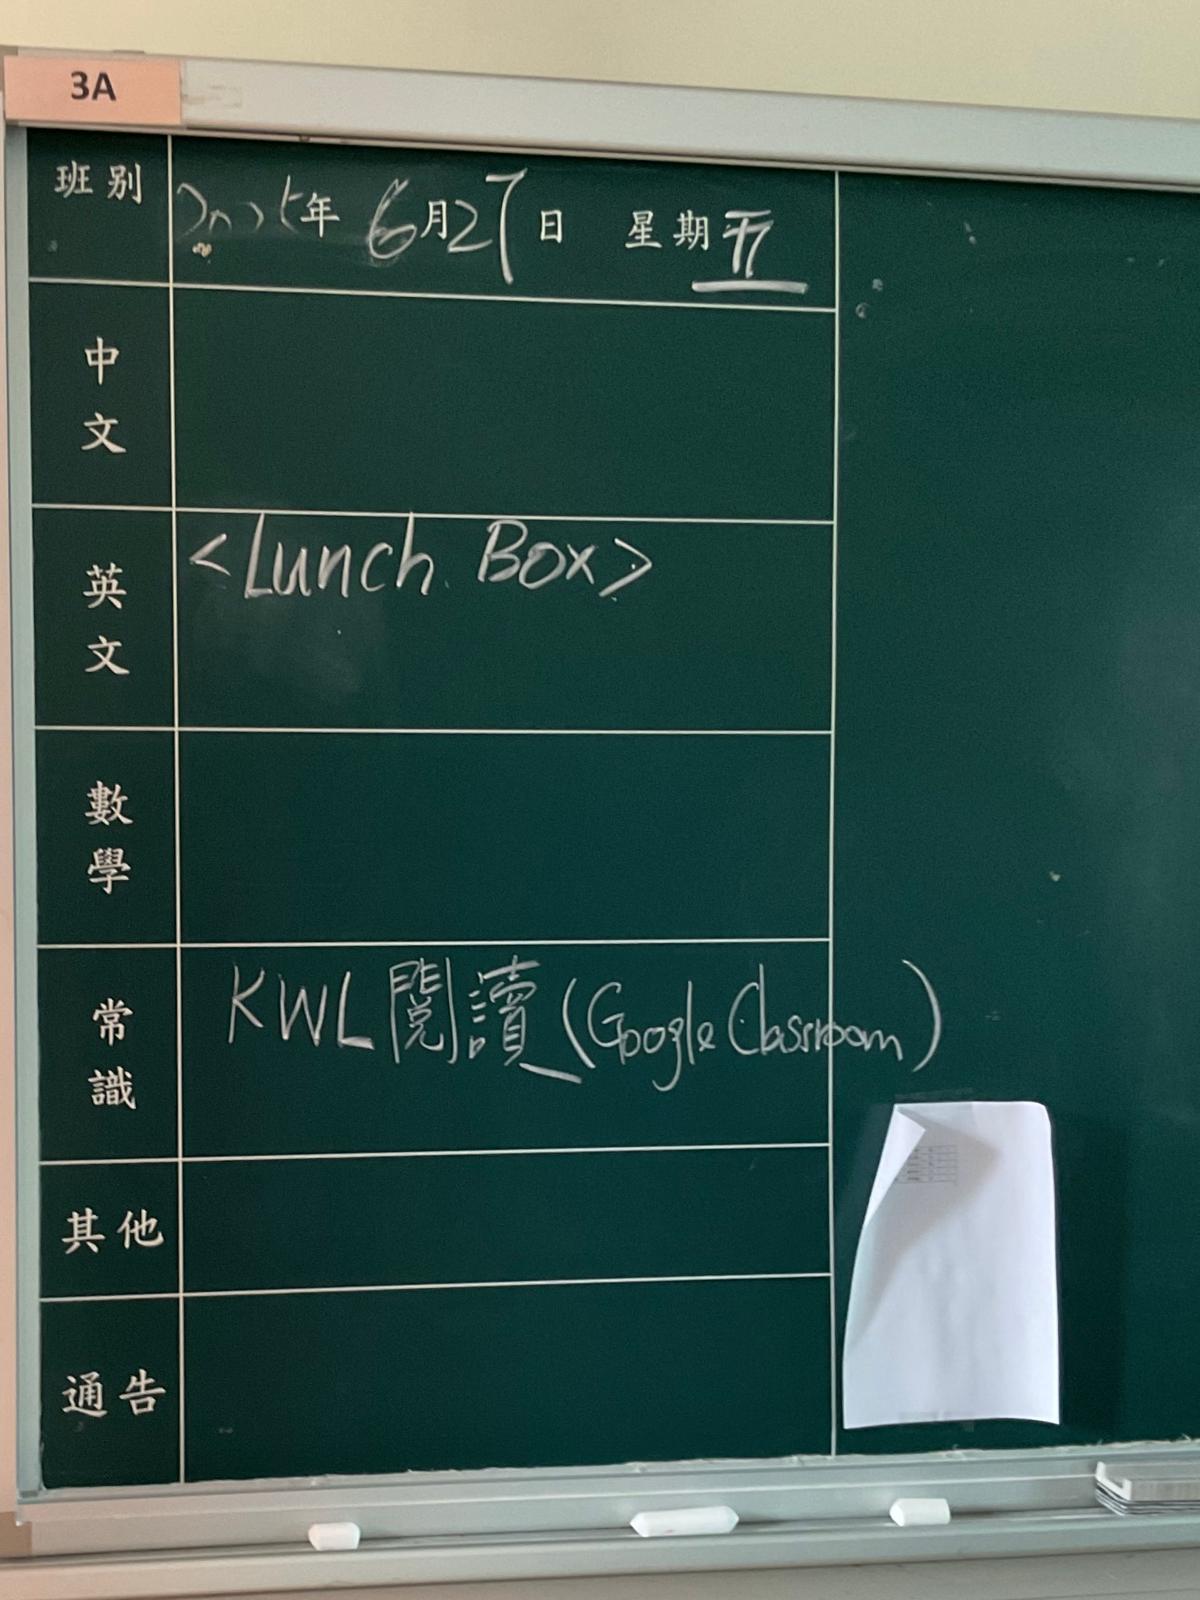 3A
班別 2025年 6月27日 星期五
中文
英文 <Lunch Box>
數學
常識 KWL閱讀(Google Classroom)
其他
通告